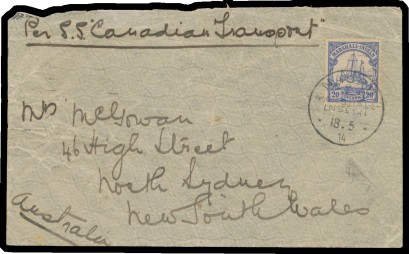 Per S.S "Canadian Transport"
MARSHALL-INSELN
20 20
INSELN
18.5
14
Mrs McGowan
46 High Street
North Sydney
New South Wales
Australia